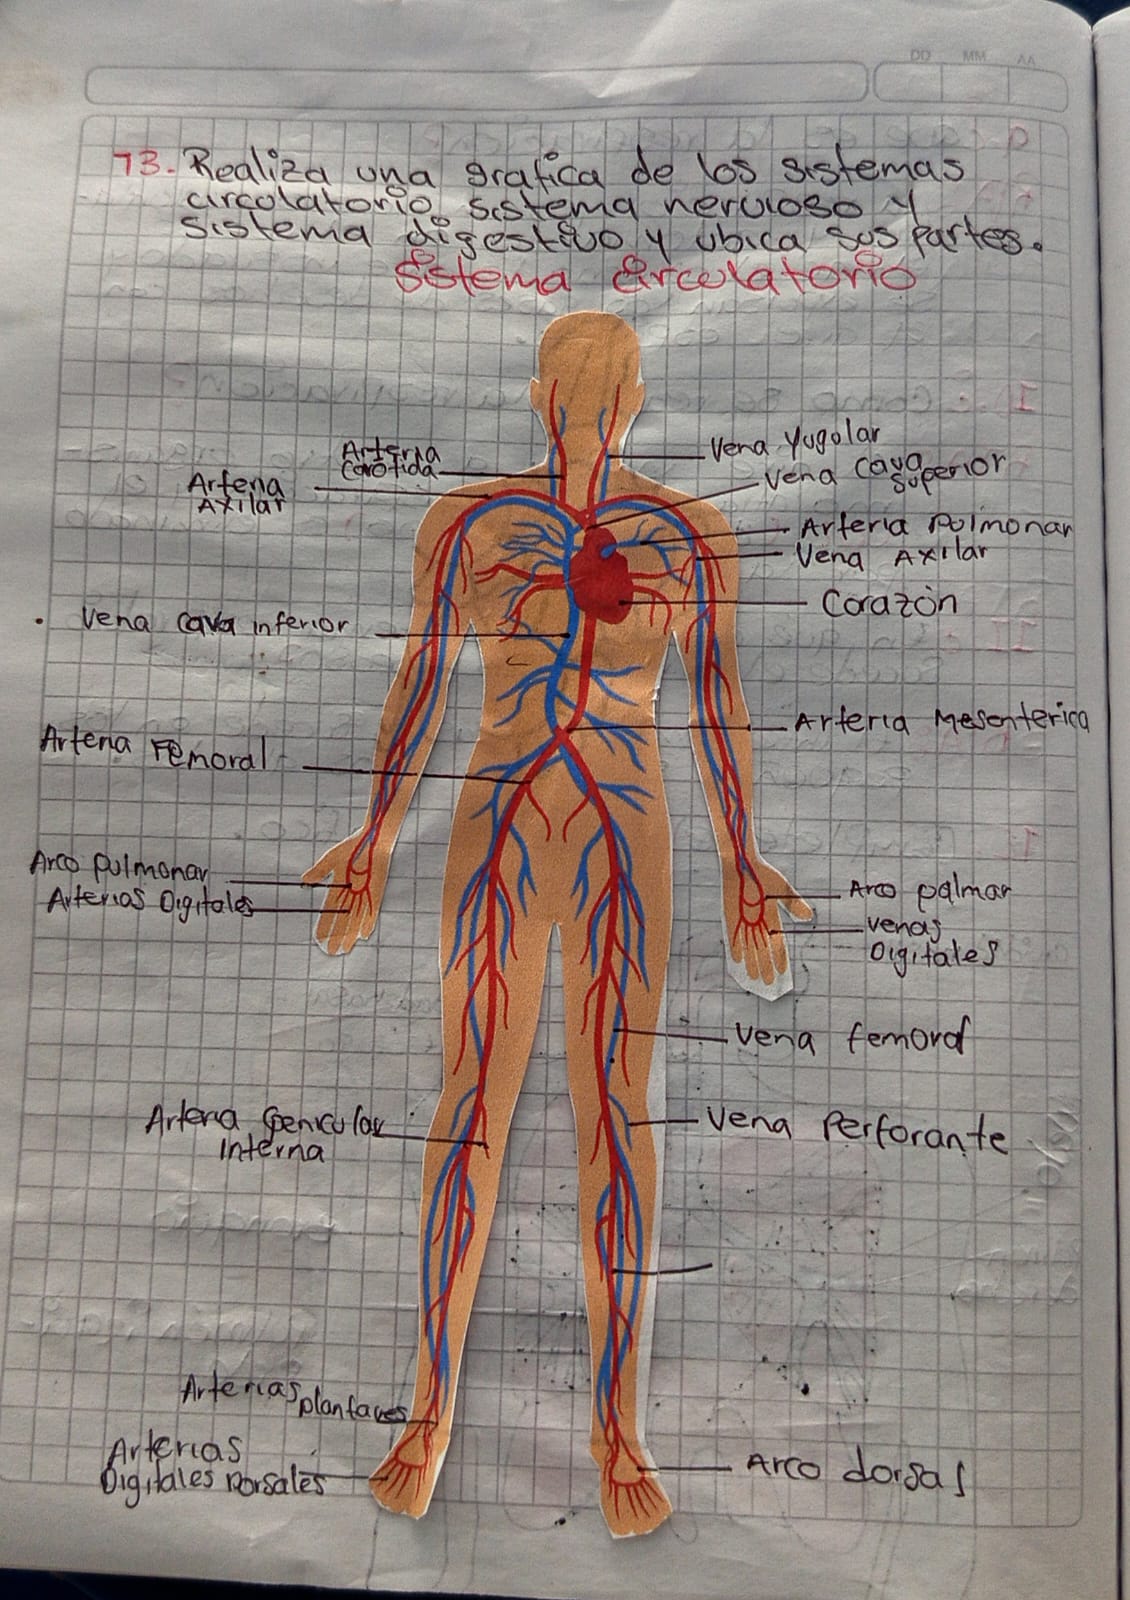 DD MM AA
13. Realiza una grafica de los sistemas
circulatorio, sistema nervioso y
sistema digestivo y ubica sus partes.
Sistema Circulatorio
Arteria
Carotida
Vena Yugolar
Vena Cava
Superior
Arteria
Axilar
Arteria Pulmonar
Vena Axilar
Corazón
Vena cava inferior
Arteria Mesenterica
Arteria Femoral
Arco pulmonar
Arterias Digitales
Arco palmar
Venas
Digitales
Vena femoral
Arteria Genicular
Interna
Vena Perforante
Arterias plantares
Arterias
Digitales Dorsales
Arco dorsal